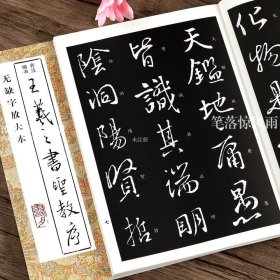 无缺字放大本
王羲之書聖教序
化物
天鑑地庸愚
皆識其端明
陰洞陽賢哲
七
笔落惊风雨